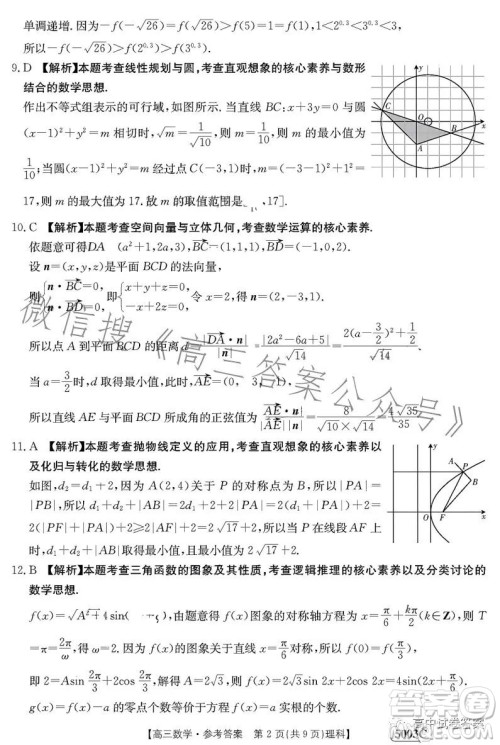 单调递增. 因为-f(-√26)=f(√26)>f(5)=1, 1<2^0.3<3^0.3<3^1/2
所以-f(-√26)>f(2^0.3)>f(3^0.3).
9. D 【解析】本题考查线性规划与圆,考查直观想象的核心素养与数形
结合的数学思想.
作出不等式组表示的可行域,如图所示. 当直线 BC:x+3y=0 与圆
(x-1)²+y²=m 相切时,√m=1/√10,则 m=1/10,则 m 的最小值为
1/10;当圆(x-1)²+y²=m 经过点 C(-3,1)时,m=(-3-1)²+1²=
17,则 m 的最大值为 17. 故 m 的取值范围是 ,17].
10. C 【解析】本题考查空间向量与立体几何,考查数学运算的核心素养.
依题意可得DA (a²+1,2a,3),BC=(-1,1,1),BD=
设 n=(x,y,z)是平面 BCD 的法向量,
则{n·BC=0, n·BD=0, 即{-x+y+z=0, -x+2z=0, 令 x=2,得 n=
所以点 A 到平面 BCD 的距离 d=|DA·n|/|n|=|2a²-6a+5|/√14=
当 a=3/2 时,d 取得最小值,此时,AE=
所以直线 AE 与平面 BCD 所成角的正弦值为|AE·n|/|AE||n|=8/(√10×√14)=4√35/35
11. A 【解析】本题考查抛物线定义的应用,考查直观想象的核心素养以
及化归与转化的数学思想.
如图,d₂=d₁+2,因为 A(2,4)关于 P 的对称点为 B,所以|PA|=
|PB|,所以 d₁+d₂+|AB|=2d₁+2+2|PA|=2(d₁+|PA|)+2=
2(|PF|+|PA|)+2≥2|AF|+2=2√17+2,所以当 A,P,F 三点共线
时,d₁+d₂+|AB|取得最小值,且最小值为 2√17+2.
12. B 【解析】本题考查三角函数的图象及其性质,考查逻辑推理的核心素养以及分类讨论的
数学思想.
f(x)=√A²+4sin( ),由题意得 f(x)图象的对称轴方程为 x=π/6+kπ/2(k∈Z),则
T=π=2π/ω,得 ω=2. 因为 f(x)的图象关于直线 x=π/6 对称,所以 f(0)=f(π/3),
即 2=Asin 2π/3+2cos 2π/3,解得 A=2√3,则 f(x)=2√3sin 2x+2cos 2x=4sin(2x+π/6).
【高三数学·参考答案 第 2 页(共 9 页)理科】
微信搜《高三答案公众号》
高中试卷答案